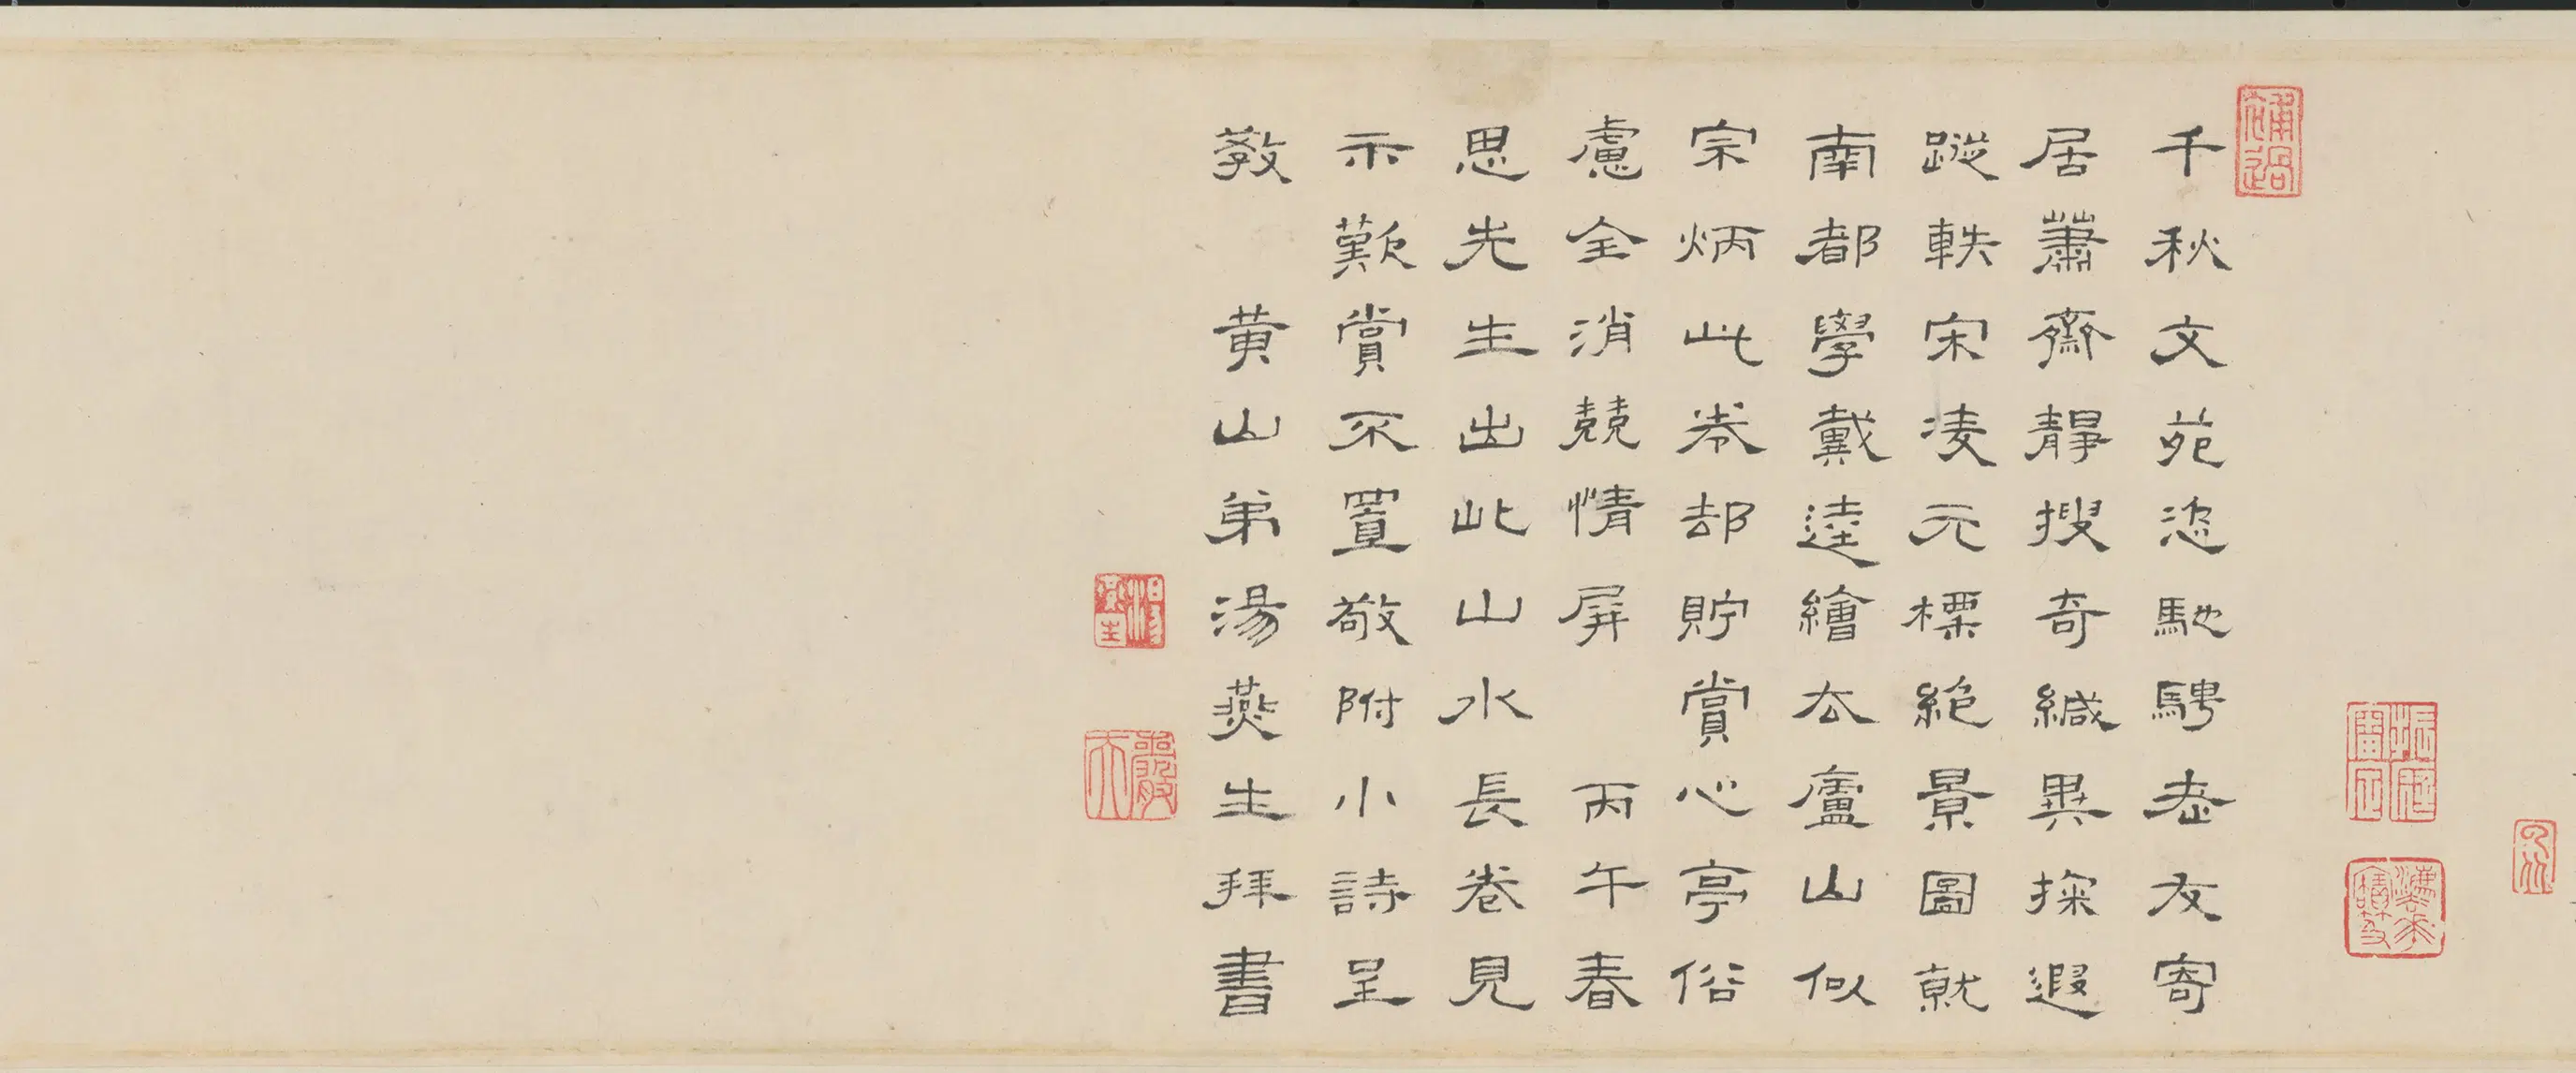 補過
千秋文苑恣馳騁老友寄
居蕭齋靜搜奇緘異探遐
蹤軼宋凌元標絕景圖就
南都學戴逵繪去廬山似
宗炳此卷却貯賞心亭俗
慮全消競情屏 丙午春
思先生出此山水長卷見
示歎賞不置敬附小詩呈
教 黃山弟湯燕生拜書
湯燕生